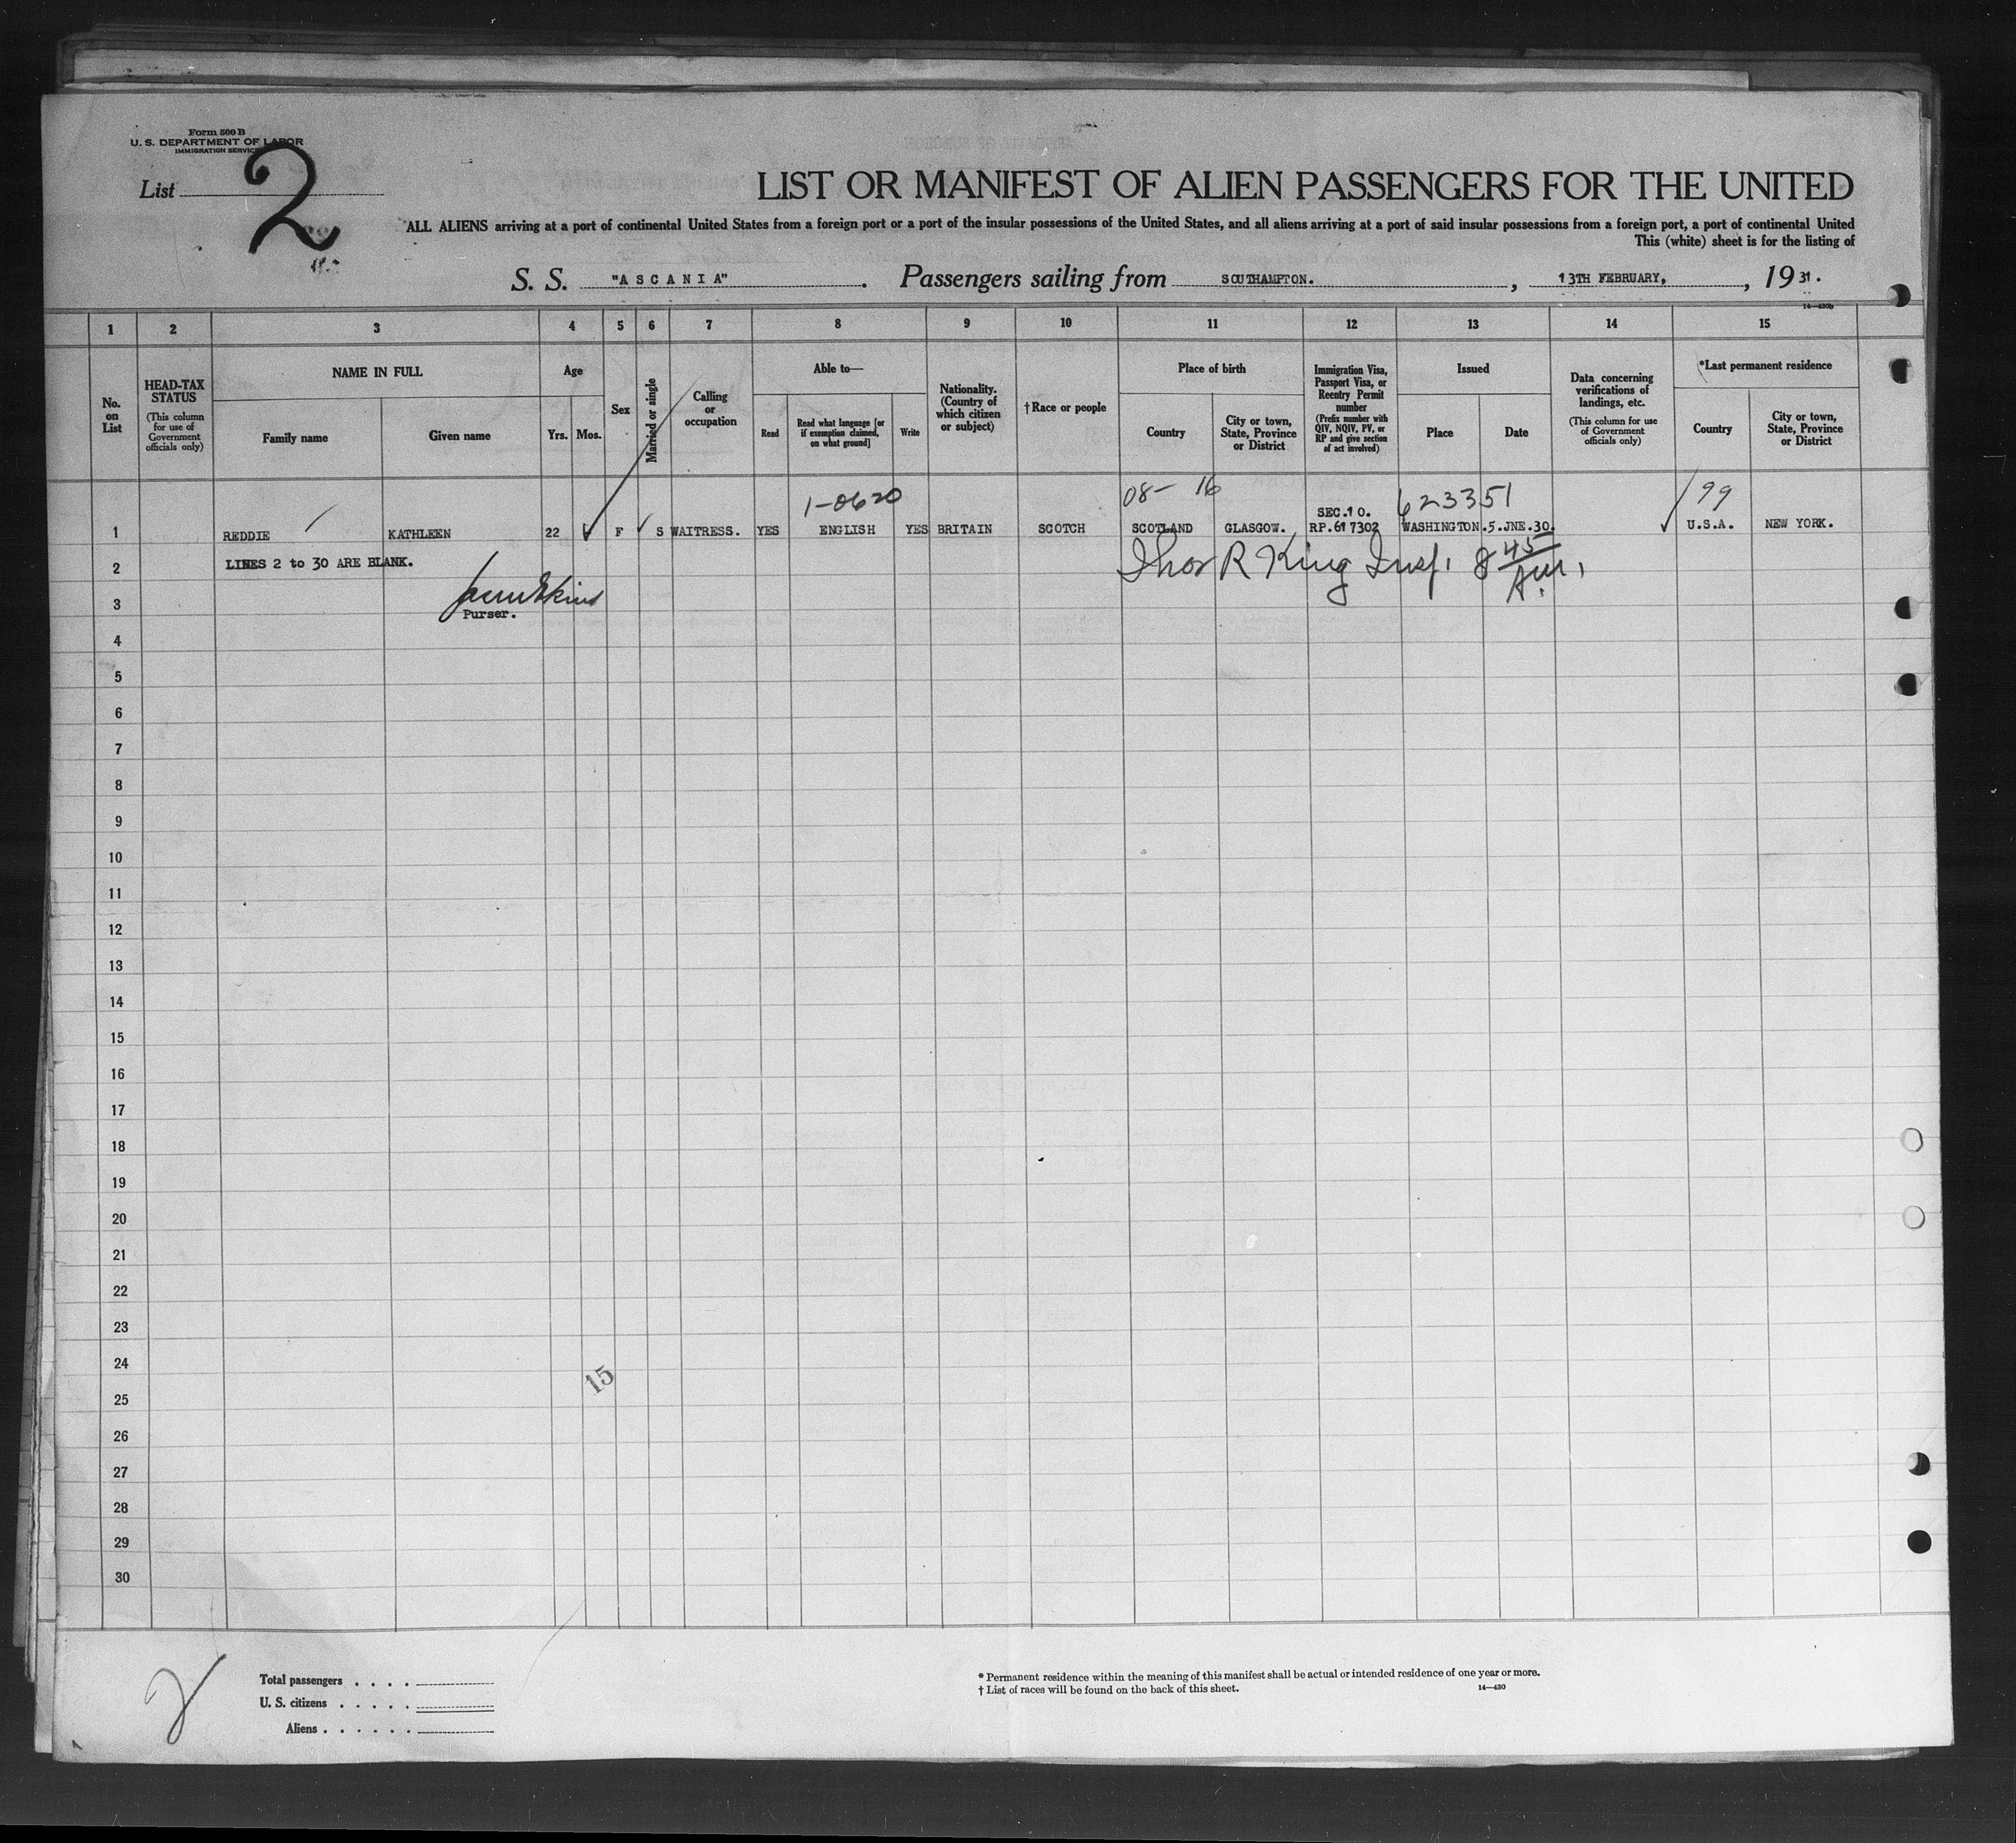 Form 500 B
U. S. DEPARTMENT OF LABOR
IMMIGRATION SERVICE
List 2
LIST OR MANIFEST OF ALIEN PASSENGERS FOR THE UNITED
ALL ALIENS arriving at a port of continental United States from a foreign port or a port of the insular possessions of the United States, and all aliens arriving at a port of said insular possessions from a foreign port, a port of continental United
This (white) sheet is for the listing of
S. S. "ASCANIA". Passengers sailing from SOUTHAMPTON. , 13TH FEBRUARY, , 1931.
14—430b
1 2 3 4 5 6 7 8 9 10 11 12 13 14 15
No. on List
HEAD-TAX STATUS
(This column for use of Government officials only)
NAME IN FULL
Family name
Given name
Age
Yrs. Mos.
Sex
Married or single
Calling or occupation
Able to—
Read
Read what language [or if exemption claimed, on what ground]
Write
Nationality. (Country of which citizen or subject)
†Race or people
Place of birth
Country
City or town, State, Province or District
Immigration Visa, Passport Visa, or Reentry Permit number
(Prefix number with QIV, NQIV, PV, or RP and give section of act involved)
Issued
Place
Date
Data concerning verifications of landings, etc.
(This column for use of Government officials only)
*Last permanent residence
Country
City or town, State, Province or District
1-0620 08- 16 623351 99
SEC.10.
1 REDDIE KATHLEEN 22 F S WAITRESS. YES ENGLISH YES BRITAIN SCOTCH SCOTLAND GLASGOW. RP.617302 WASHINGTON.5.JNE.30. U.S.A. NEW YORK.
2 LINES 2 to 30 ARE BLANK. Thos R King Insp. 8 45/AM.
3
Purser.
4
5
6
7
8
9
10
11
12
13
14
15
16
17
18
19
20
21
22
23
24
15
25
26
27
28
29
30
Total passengers . . . .
U. S. citizens . . . . .
Aliens . . . . . .
* Permanent residence within the meaning of this manifest shall be actual or intended residence of one year or more.
† List of races will be found on the back of this sheet.
14—430